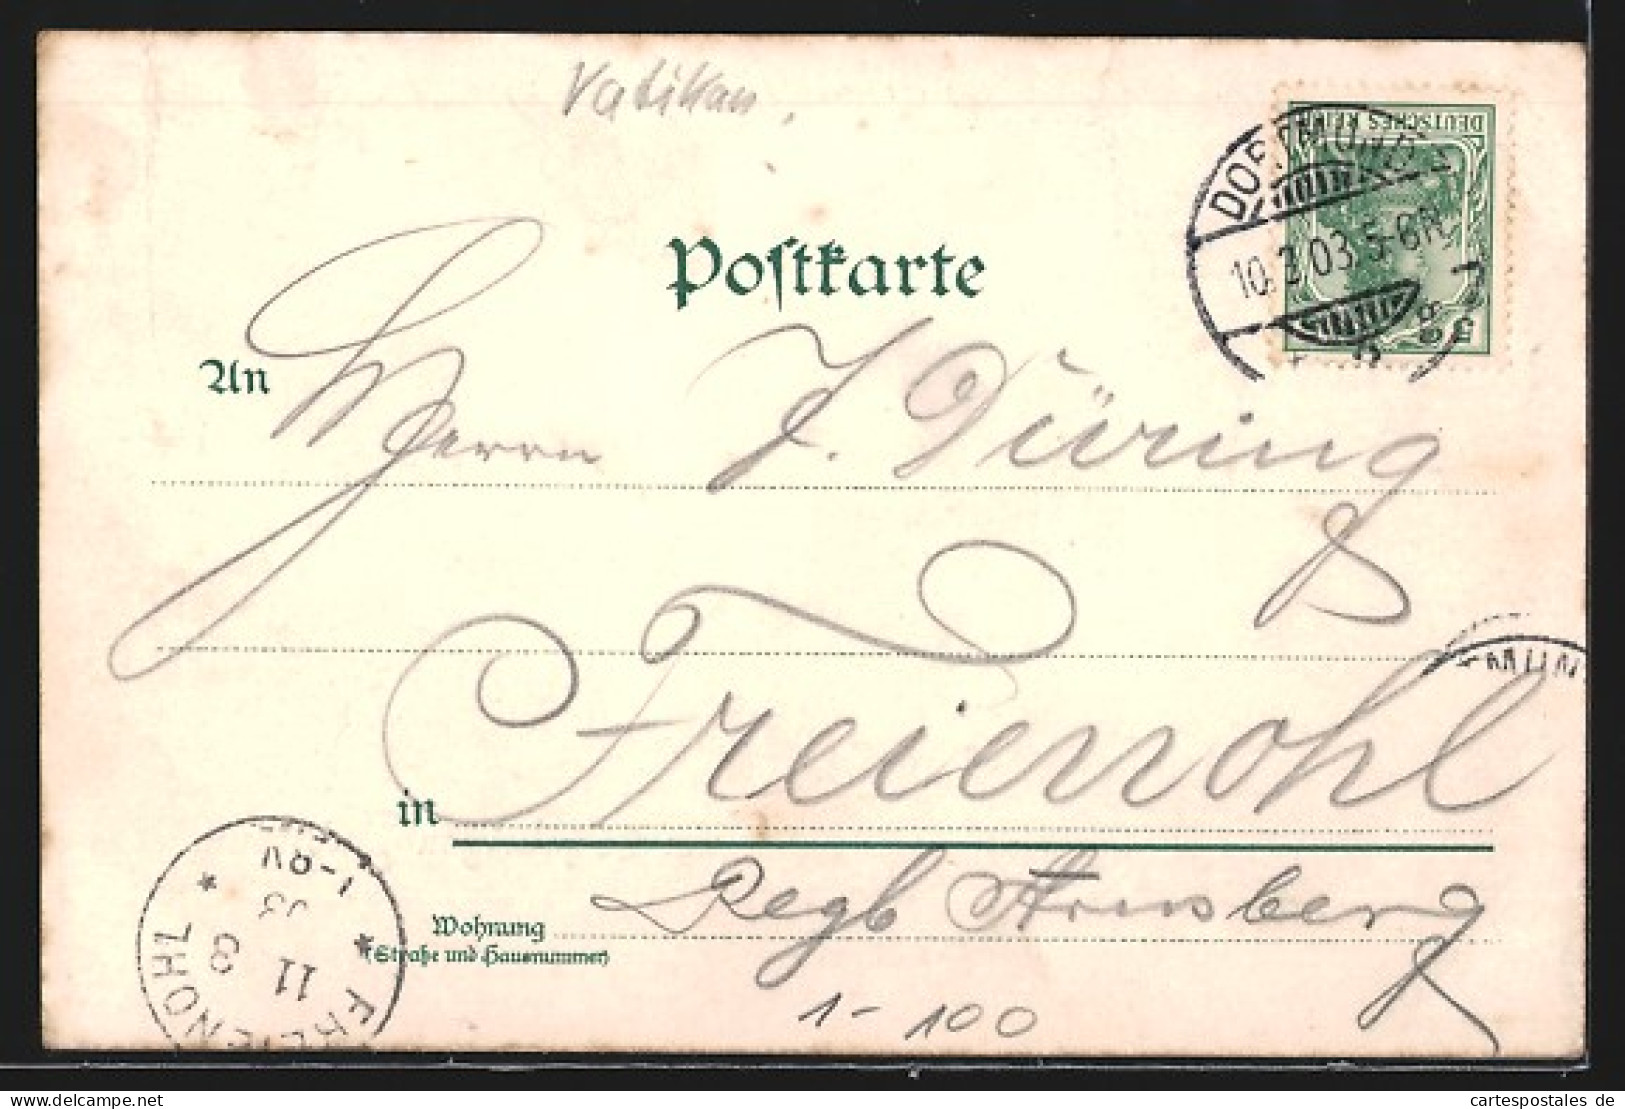 Vatikan.
DEUTSCHES REICH
5
DORTMUND
10.3.03.5-6N.
Postkarte
An
Herrn J. Düring
Freienohl
in
Regb Arnsberg
Wohnung
(Straße und Hausnummer)
1-100
FREIENOHL
11 3 03
1-8V
cartespostales de